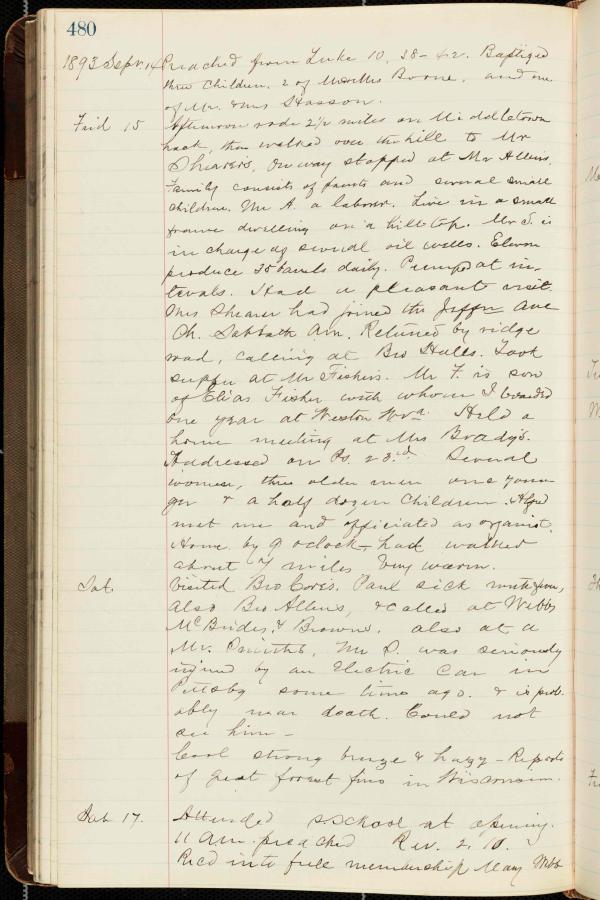 480
1893 Sept. 14 Preached from Luke 10, 38-42. Baptized
three children. 2 of Boone, and one
of Mr. & Mrs
Frid 15 Afternoon rode 2½ miles on Middletown
hack, then walked over the hill to Mr
Shearers, On way stopped at Mr Allens,
Family consists of and several small
children. Mr A. a laborer. Live in a small
frame dwelling on a hill top. Mr S. is
in charge of several oil wells. Eleven
produce 25 barrels daily. Pumped at in-
tervals. Had a pleasant visit.
Mrs Shearer had joined the Ave
Ch. Sabbath Am. Returned by ridge
road, calling at Bro Halls. Took
supper at Mr Fishers. Mr F. is son
of Elias Fisher with whom I boarded
one year at Weston W Va. Held a
home meeting at Mrs Bradys.
Addressed on Ps. 23rd. Several
women, three older men one youn-
ger & a half dozen children.
met me and officiated as organist.
Home by 9 oclock - had walked
about 7 miles Very warm.
Sat. Visited Bro Paul sick
also Bro Allens, & called at Webbs
McBrides, & Browns. also at a
Mr. Smiths, Mr S. was seriously
injured by an Electric Car in
Pittsbg some time ago. & is prob-
ably near death. Could not
see him -
Cool strong breeze & hazy - Reports
of great forest fires in Wisconsin.
Sab 17. Attended S.School at opening.
11 Am. preached Rev. 2, 10.
Recd into full membership Mary Webb